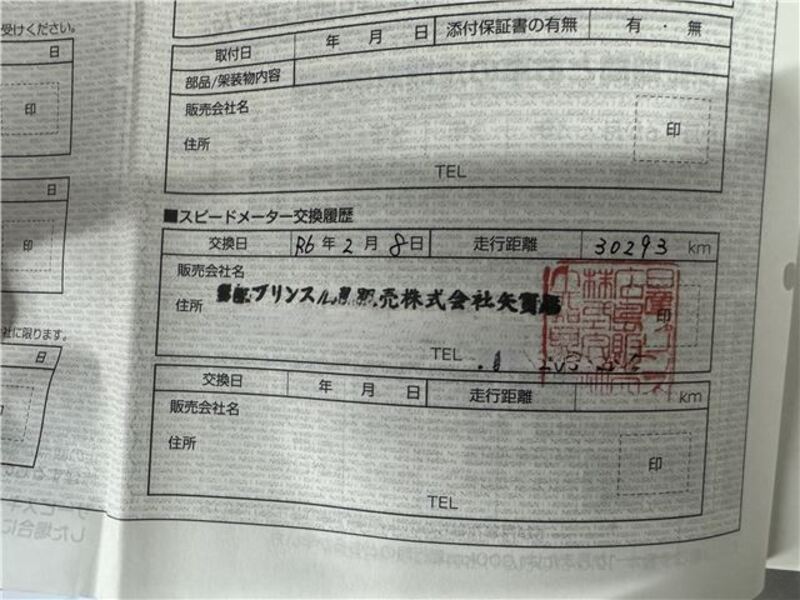 受けください。
日
印
日
印
社に限ります。
日
取付日 年 月 日 添付保証書の有無 有 ・ 無
部品/架装物内容
販売会社名
住所
印
TEL
■スピードメーター交換履歴
交換日 R6年2月8日 走行距離 30293 km
販売会社名
住所 プリンス 売株式会社矢賀
印
TEL
交換日 年 月 日 走行距離 km
販売会社名
住所
印
TEL